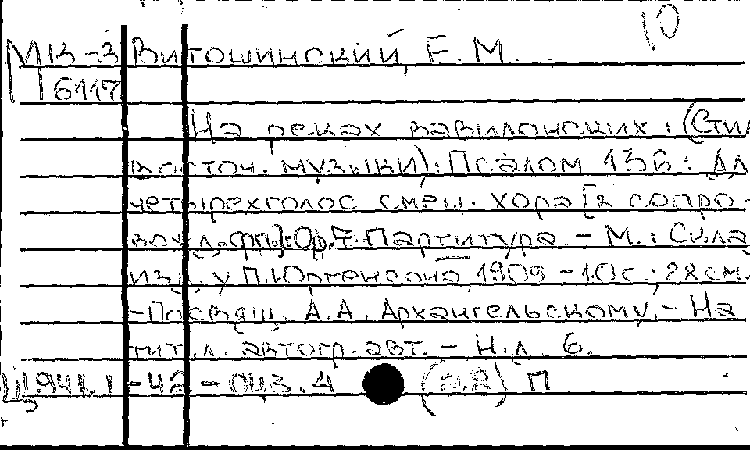 10
МК-3 Витошинский, Е. М.
6117
На реках вавилонских: (Стил
восточ. музыки): Псалом 136: Дл
четырехголос. смеш. хора [в сопро-
вожд. фп.]: Ор. 7. Партитура. - М.: Скла
изд. у П. Юргенсона, 1909 - 10 с.; 28 см.
- Посвящ. А. А. Архангельскому. - На
тит. л. автогр. авт. - Н. д. 6.
Ц 941.1 - 42 - 043.4 П